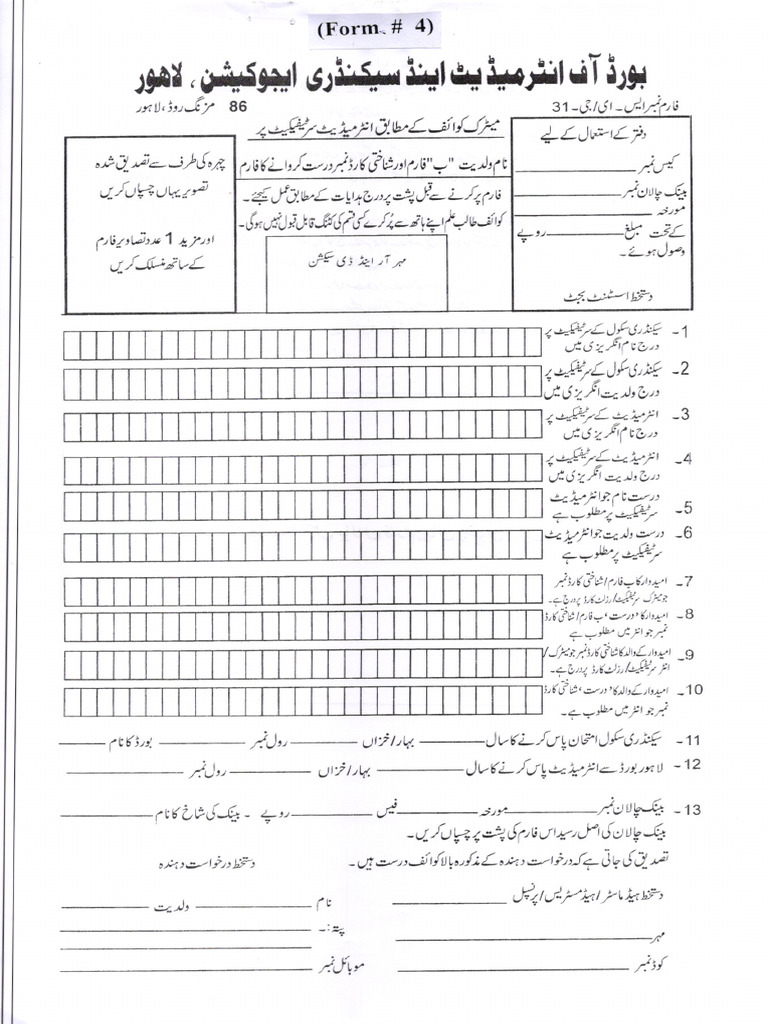 (Form # 4)
بورڈ آف انٹرمیڈیٹ اینڈ سیکنڈری ایجوکیشن، لاہور
فارم نمبر ایس۔ ای/جی۔ 31
86 مزنگ روڈ، لاہور
دفتر کے استعمال کے لیے
کیس نمبر
بینک چالان نمبر
مورخہ
کے تحت مبلغ روپے
وصول ہوئے۔
دستخط اسسٹنٹ بجٹ
میٹرک کوائف کے مطابق انٹرمیڈیٹ سرٹیفیکیٹ پر
نام ولدیت "ب" فارم اور شناختی کارڈ نمبر درست کروانے کا فارم
فارم پر کرنے سے قبل پشت پر درج ہدایات کے مطابق عمل کیجئے۔
کوائف طالب علم اپنے ہاتھ سے پُر کرے کسی قسم کی کٹنگ قابل قبول نہیں ہوگی۔
مہر آر اینڈ ڈی سیکشن
چہرہ کی طرف سے تصدیق شدہ
تصویر یہاں چسپاں کریں
اور مزید 1 عدد تصاویر فارم
کے ساتھ منسلک کریں
1۔ سیکنڈری سکول کے سرٹیفیکیٹ پر
درج نام انگریزی میں
2۔ سیکنڈری سکول کے سرٹیفیکیٹ پر
درج ولدیت انگریزی میں
3۔ انٹرمیڈیٹ کے سرٹیفیکیٹ پر
درج نام انگریزی میں
4۔ انٹرمیڈیٹ کے سرٹیفیکیٹ پر
درج ولدیت انگریزی میں
5۔ درست نام جو انٹرمیڈیٹ
سرٹیفیکیٹ پر مطلوب ہے
6۔ درست ولدیت جو انٹرمیڈیٹ
سرٹیفیکیٹ پر مطلوب ہے
7۔ امیدوار کا ب فارم/شناختی کارڈ نمبر
جو میٹرک سرٹیفیکیٹ/رزلٹ کارڈ پر درج ہے۔
8۔ امیدوار کا 'درست' ب فارم/شناختی کارڈ
نمبر جو انٹر میں مطلوب ہے
9۔ امیدوار کے والد کا شناختی کارڈ نمبر جو میٹرک/
انٹر سرٹیفیکیٹ/رزلٹ کارڈ پر درج ہے۔
10۔ امیدوار کے والد کا 'درست' شناختی کارڈ
نمبر جو انٹر میں مطلوب ہے۔
11۔ سیکنڈری سکول امتحان پاس کرنے کا سال بہار/خزاں رول نمبر بورڈ کا نام
12۔ لاہور بورڈ سے انٹرمیڈیٹ پاس کرنے کا سال بہار/خزاں رول نمبر
13۔ بینک چالان نمبر مورخہ فیس روپے۔ بینک کی شاخ کا نام
بینک چالان کی اصل رسید اس فارم کی پشت پر چسپاں کریں۔
تصدیق کی جاتی ہے کہ درخواست دہندہ کے مذکورہ بالا کوائف درست ہیں۔
دستخط درخواست دہندہ
دستخط ہیڈ ماسٹر/ہیڈ مسٹریس/پرنسپل
نام ولدیت
مہر
پتہ:۔
کوڈ نمبر
موبائل نمبر